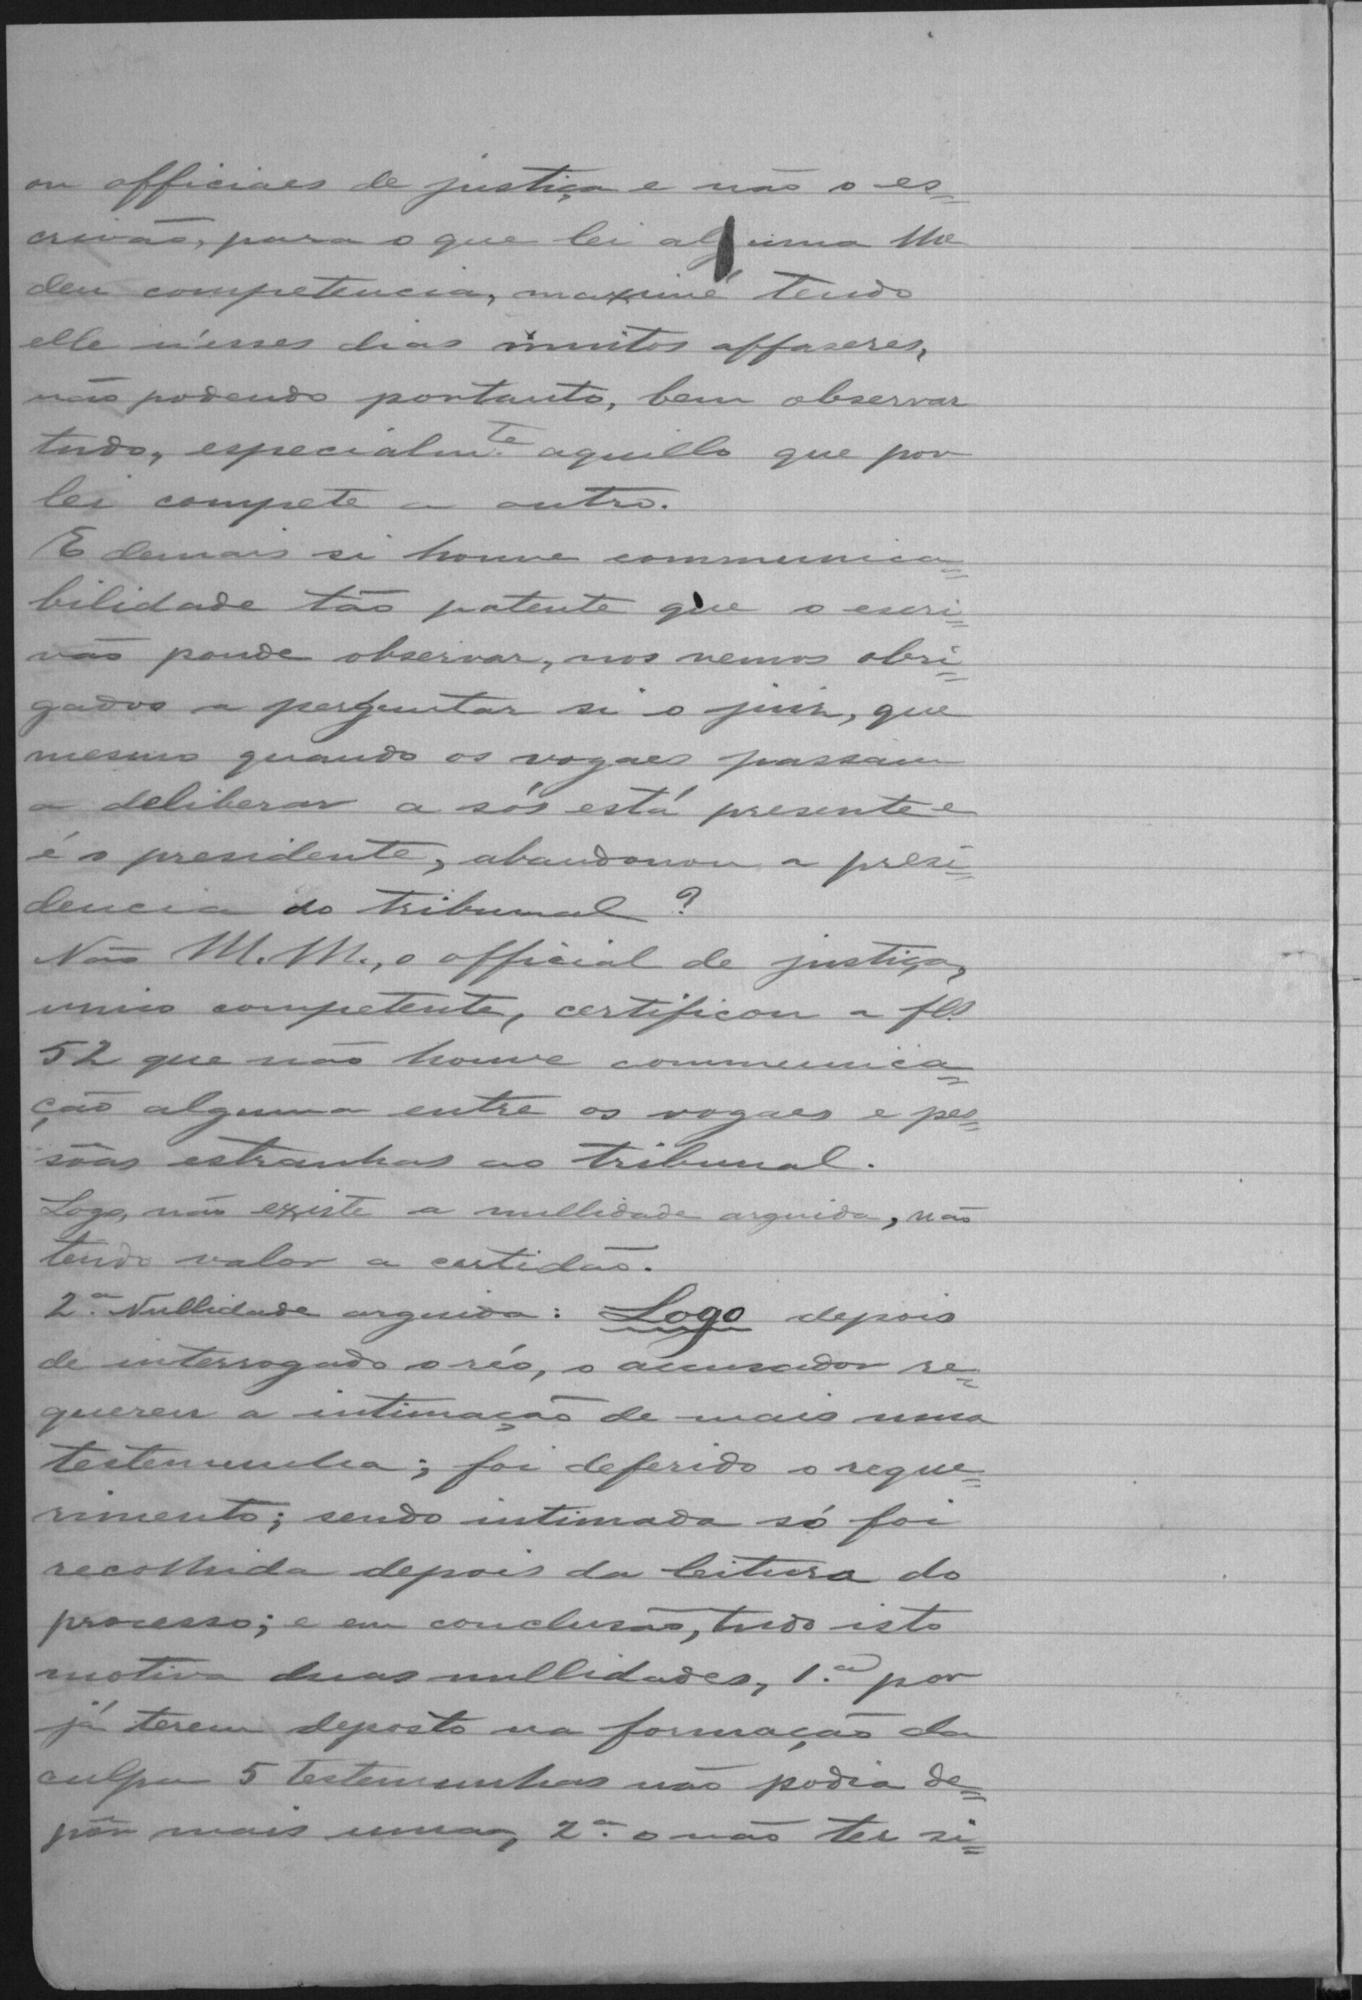 ou officiaes de justiça e não o es=
crivão, para o que lei alguma lhe
deu competencia, maximé tendo
elle n'esses dias muitos affaseres,
não podendo portanto, bem observar
tudo, especialm.te aquillo que por
lei compete a outro.
E demais si houve communica=
bilidade tão patente que o escri=
vão poude observar, nos vemos obri=
gados a perguntar si o juiz, que
mesmo quando os vogaes passam
a deliberar a sós está presente e
é o presidente, abandonou a presi=
dencia do tribunal?
Não M. M., o official de justiça,
unico competente, certificou a fls
52 que não houve communica=
ção alguma entre os vogaes e pes=
sôas estranhas ao tribunal.
Logo, não existe a nullidade arguida, não
tendo valor a certidão.
2.a Nullidade arguida: Logo depois
de interrogado o réo, o accusador re=
quereu a intimação de mais uma
testemunha; foi deferido o reque=
rimento; sendo intimada só foi
recolhida depois da leitura do
processo; e em conclusão, tudo isto
motiva duas nullidades, 1.a por
já terem deposto na formação da
culpa 5 testemunhas não podia de=
pôr mais uma, 2.a o não ter si=